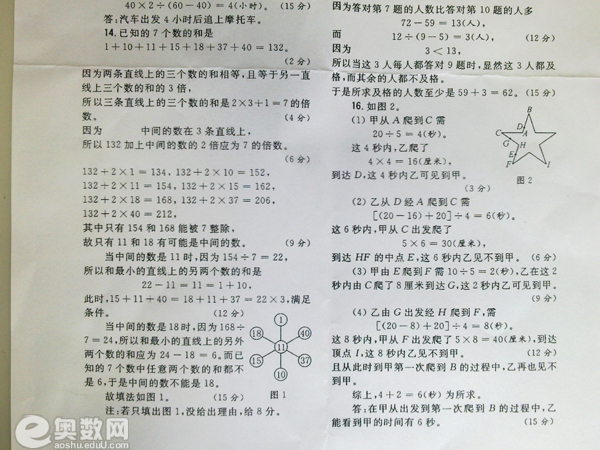 40×2÷(60-40)=4(小时). (15分)
答:汽车出发4小时后追上摩托车.
14.已知的7个数的和是
1+10+11+15+18+37+40=132.
(2分)
因为两条直线上的三个数的和相等,且等于另一直
线上三个数的和的3倍,
所以三条直线上的三个数的和是2×3+1=7的倍
数. (4分)
因为 中间的数在3条直线上,
所以132加上中间的数的2倍应为7的倍数.
(6分)
132+2×1=134, 132+2×10=152,
132+2×11=154, 132+2×15=162,
132+2×18=168, 132+2×37=206,
132+2×40=212,
其中只有154和168能被7整除,
故只有11和18有可能是中间的数. (9分)
当中间的数是11时,因为154÷7=22,
所以和最小的直线上的另两个数的和是
22-11=11=1+10,
此时,15+11+40=18+11+37=22×3,满足
条件. (12分)
当中间的数是18时,因为168÷
7=24,所以和最小的直线上的另外
两个数的和应为24-18=6.而已
知的7个数中任意两个数的和都不
是6,于是中间的数不能是18.
故填法如图1. (15分)
注:若只填出图1,没给出理由,给8分.
1
18
40
11
15
37
10
图1
因为答对第7题的人数比答对第10题的人多
72-59=13(人),
而 12÷(9-5)=3(人), (12分)
因为 3<13,
所以当这3人每人都答对9题时,显然这3人都及
格,而其余的人都不及格.
于是所求及格的人数至少是59+3=62. (15分)
16.如图2.
(1)甲从A爬到C需
20÷5=4(秒).
这4秒内,乙爬了
4×4=16(厘米),
到达D,这4秒内乙可见到甲.
(3分)
B
D
A
C
G
H
E
F
I
图2
(2)乙从D经A爬到C需
[(20-16)+20]÷4=6(秒).
这6秒内,甲从C出发爬了
5×6=30(厘米),
到达HF的中点E,这6秒内乙见不到甲. (6分)
(3)甲由E爬到F需10÷5=2(秒),乙在这2
秒内由C爬了8厘米到达G,这2秒内乙可见到甲.
(9分)
(4)乙由G出发经H爬到F,需
[(20-8)+20]÷4=8(秒).
这8秒内,甲从F出发爬了5×8=40(厘米),到达
顶点I,这8秒内乙见不到甲. (12分)
且从此时到甲第一次爬到B的过程中,乙再也见不
到甲.
综上,4+2=6(秒)为所求.
答:在甲从出发到第一次爬到B的过程中,乙
能看到甲的时间有6秒. (15分)
e奥数网
aoshu.eduU.com